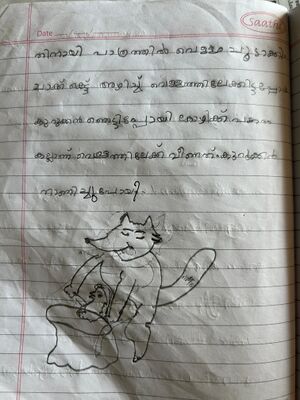 saathi
Date
തിന്നായി പാത്രത്തിൽ വെള്ളം ചൂടാക്കി
ചാക്ക് കെട്ട് അഴിച്ച് വെള്ളത്തിലേക്കിട്ടപ്പോൾ
കുറുക്കൻ ഞെട്ടിപ്പോയി കോഴിക്ക് പകരം
കല്ലാണ് വെള്ളത്തിലേക്ക് വീണത്. കുറുക്കൻ
നാണിച്ചു പോയി.